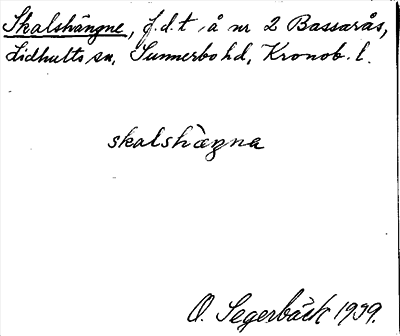 Skalshängne, f.d.t. å nr 2 Bassarås,
Lidhults sn, Sunnerbo hd, Kronob. l.
skalshæŋna
O. Segerbäck 1939.